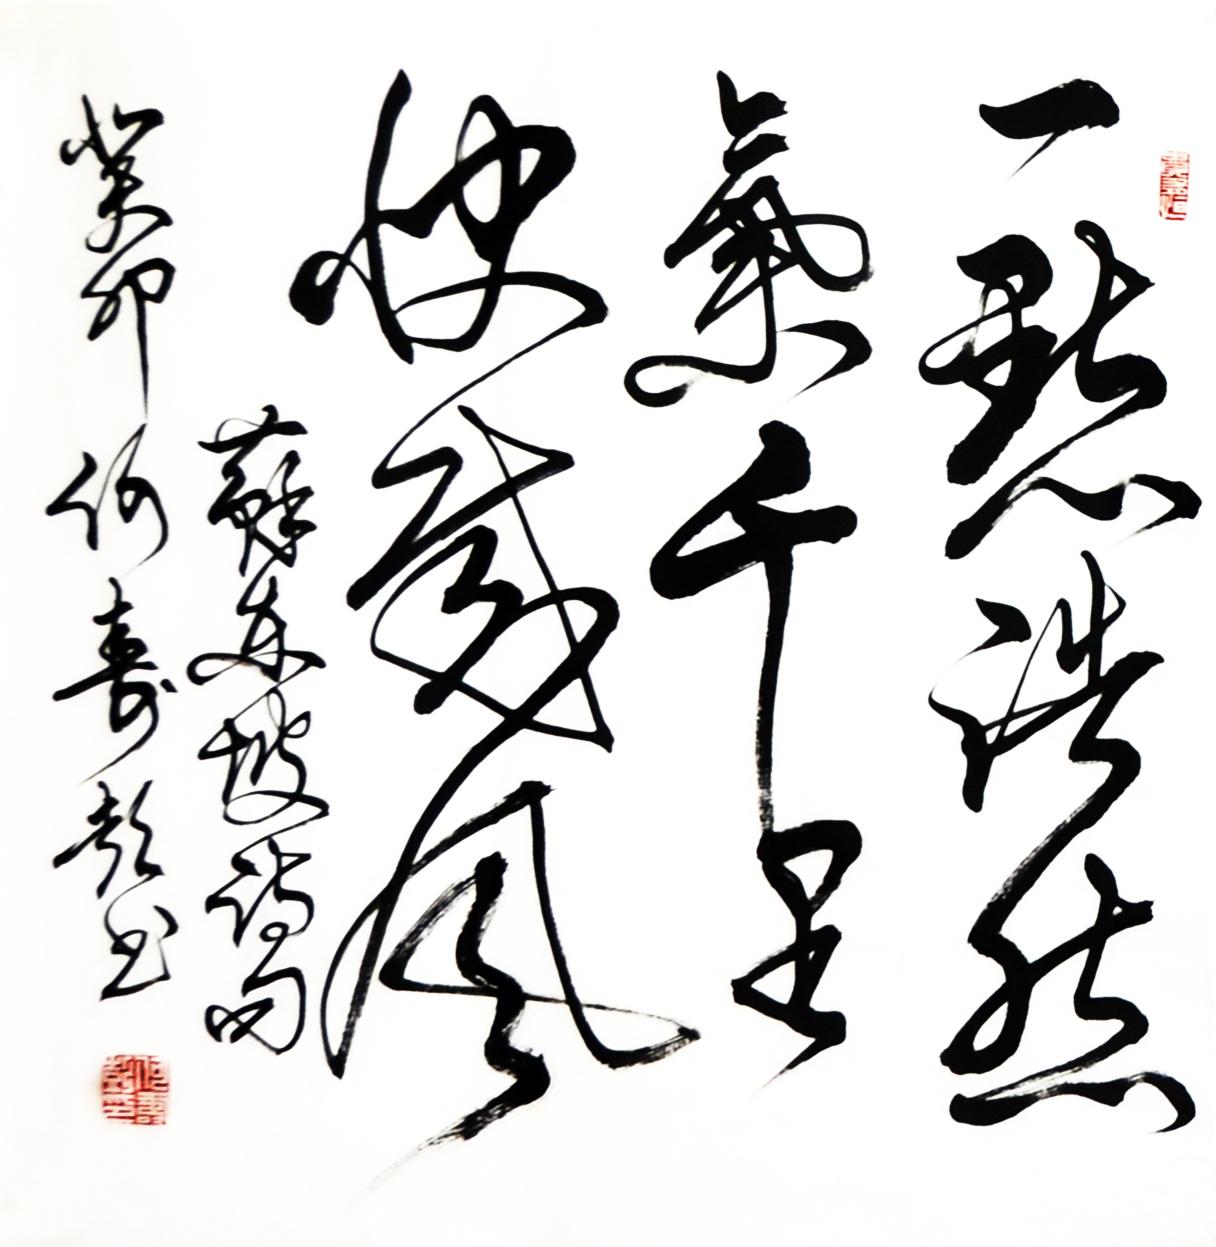 一點浩然
氣千里
快哉風
蘇東坡詩句
癸卯何壽彭书